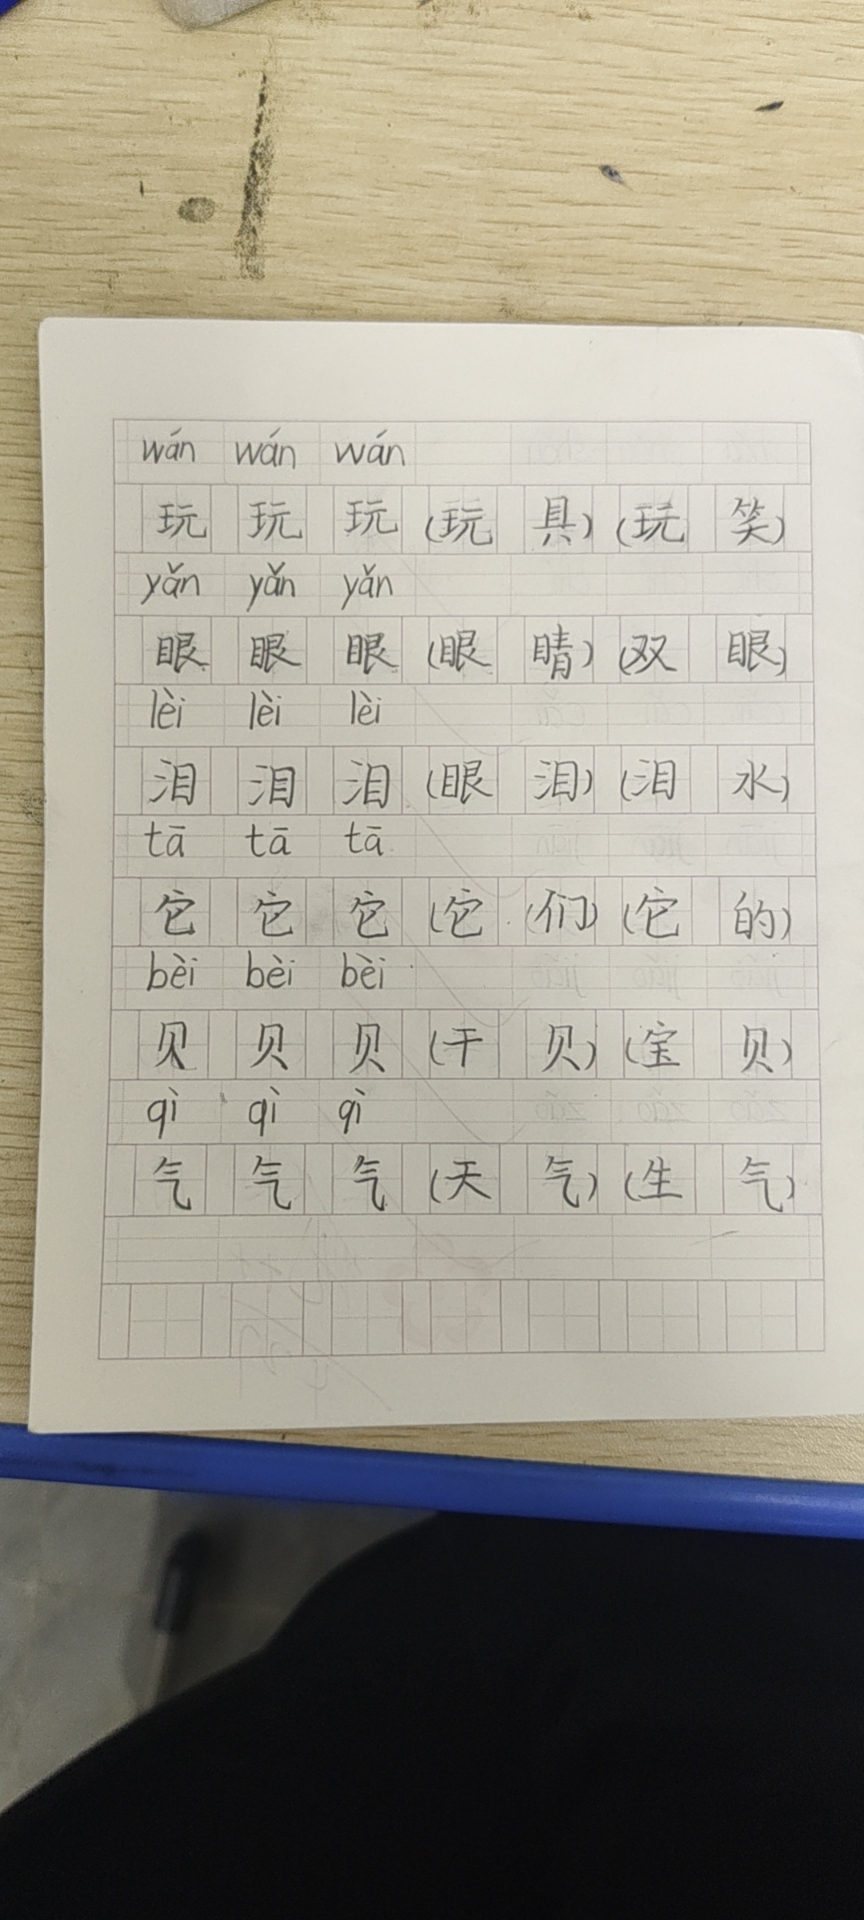 wán wán wán
玩 玩 玩 (玩 具) (玩 笑)
yǎn yǎn yǎn
眼 眼 眼 (眼 睛) (双 眼)
lèi lèi lèi
泪 泪 泪 (眼 泪) (泪 水)
tā tā tā
它 它 它 (它 们) (它 的)
bèi bèi bèi
贝 贝 贝 (干 贝) (宝 贝)
qì qì qì
气 气 气 (天 气) (生 气)